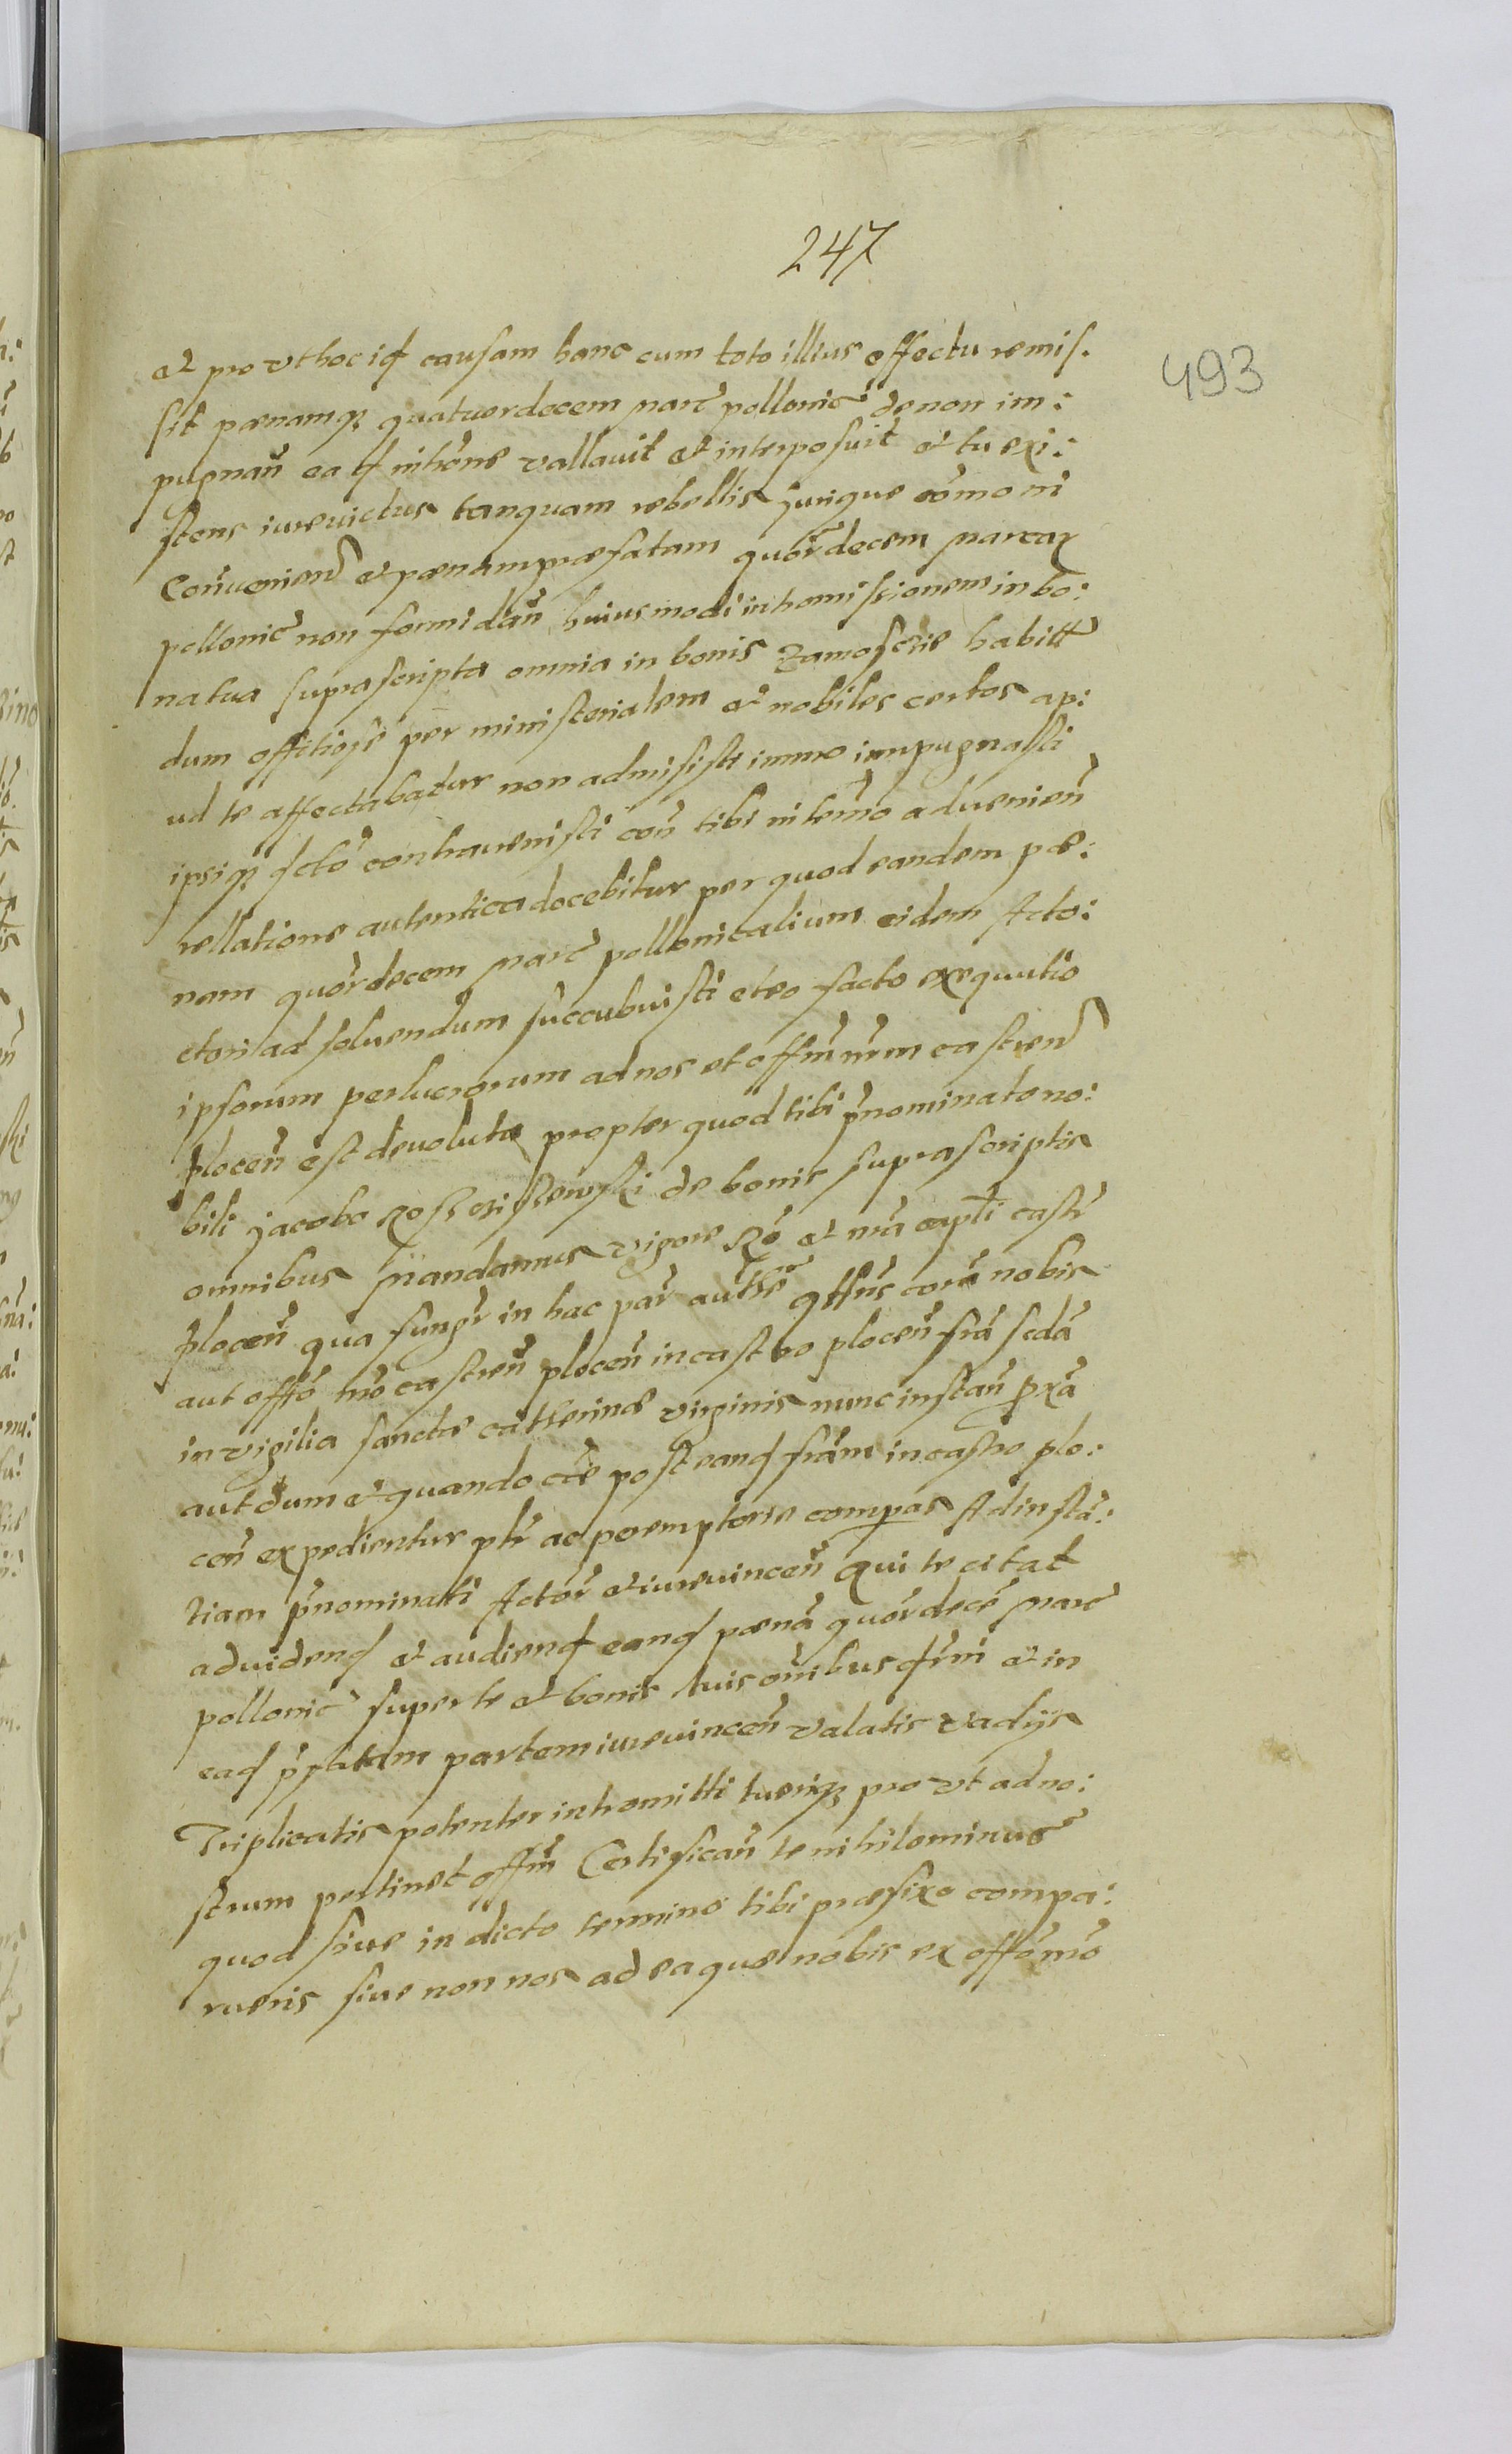 247
493
et pro vt hoc id causam hanc cum toto illius effectu remis.
sit pœnamq quatuordecem marc pollonic de non im:
pugnan ea d nitione vallavit et interposuit et tu exi:
stens iurevictus tanquam rebellis jurique com
Convenien et pœnam præfatam quordecem marcar
pollonic non formidan huiusmodi intromissionem in bo:
na tua suprascripta omnia in bonis Zamoscie habitt
dum offitiose per ministerialem et nobiles certos ap:
ud te affectabatur non admisisti immo impugnasti
ipsiq contravenisti con tibi in termo advenien
rellatione autentica docebitur per quod eandem pœ:
nam quordecem marc pollonicalium eidem Acto:
ctori ad solvendum succubuisti et eo facto exequutio
ipsorum perlucrorum ad nos et offm nrm castren
plocen est devoluta propter quod tibi pnominato no:
bili jacobo de bonis suprascriptis
omnibus Mandamus vigore Ro et nra capti castr
plocen qua fungr in hac par authe qttns cora nobis
aut offo nro castren plocen in castro plocen fria scda
in vigilia sanctæ catherinæ virginis nunc instan pxa
aut dum et quando cæ post eand friam in castro plo:
cen expedientur ptr ac peremptorie compas Ad insta:
tiam pnominati Actor et iurevincen qui te citat
ad vidend et audiend eand pœna quordece marc
pollonic super te et bonis tuis omibus et in
ead pfatam partem iurevincen valatis vadijs
Triplicatis potenter intromitti tueriq pro vt ad no:
strum pertinet offm Certifican te nihilominus
quod sive in dicto termino tibi præfixo compa:
rueris sive non nos ad ea quæ nobis ex offo nro